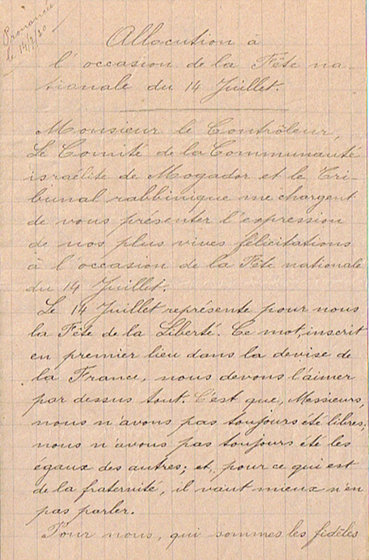 Prononcée
le 14/7/30
Allocution à
l'occasion de la Fête na-
tionale du 14 Juillet.
Monsieur le Contrôleur,
Le Comité de la Communauté
israélite de Mogador et le Tri-
bunal rabbinique me chargent
de vous présenter l'expression
de nos plus vives félicitations
à l'occasion de la Fête nationale
du 14 Juillet.
Le 14 Juillet représente pour nous
la Fête de la Liberté. Ce mot, inscrit
en premier lieu dans la devise de
la France, nous devons l'aimer
par dessus tout. C'est que, Messieurs,
nous n'avons pas toujours été libres;
nous n'avons pas toujours été les
égaux des autres; et, pour ce qui est
de la fraternité, il vaut mieux n'en
pas parler.
Pour nous, qui sommes les fidèles